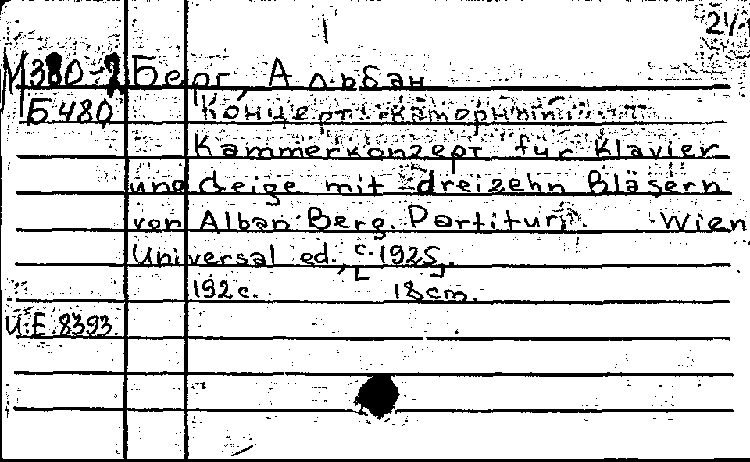 24
М380-2 Берг, Альбан
Б480 Концерт камерный
Kammerkonzept für Klavier
und Geige mit dreizehn Bläsern
von Alban Berg. Partitur. Wien
Universal ed., c.1925.
192c. 18cm.
U.E.8393